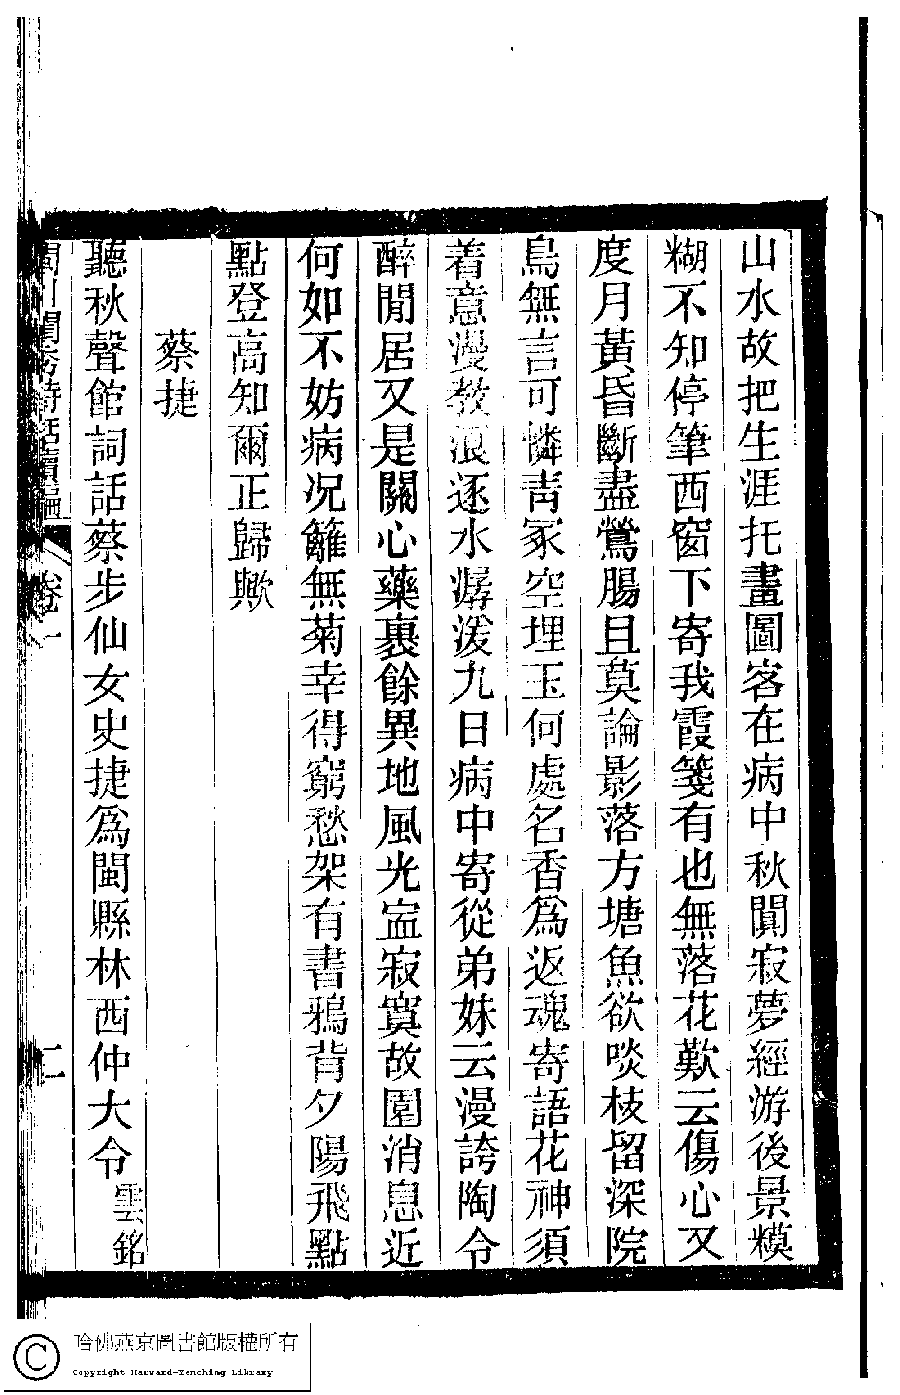 山水故把生涯托畫圖客在病中秋闃寂夢經游後景糢
糊不知停筆西窗下寄我霞箋有也無落花歎云傷心又
度月黃昏斷盡鶯腸且莫論影落方塘魚欲啖枝留深院
鳥無言可憐青冢空埋玉何處名香爲返魂寄語花神須
着意漫教浪逐水潺湲九日病中寄從弟妹云漫誇陶令
醉閒居又是關心藥裹餘異地風光宐寂寞故園消息近
何如不妨病况籬無菊幸得窮愁架有書鴉背夕陽飛點
點登高知爾正歸歟
蔡捷
聽秋聲館詞話蔡步仙女史捷爲閩縣林西仲大令雲銘
閩川閨秀詩話續編 卷一 二
哈佛燕京圖書館版權所有
Copyright Harvard-Yenching Library